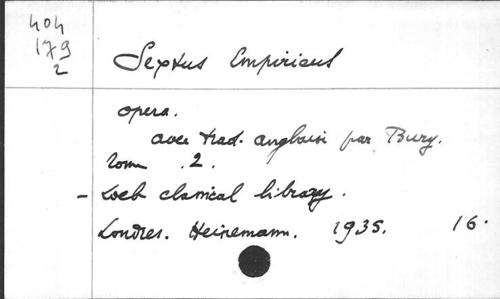 404
179
2
Sextus Empiricus
opera.
avec trad. anglaise par Bury.
Tome .2.
- Loeb classical library.
Londres. Heinemann. 1935. 16.